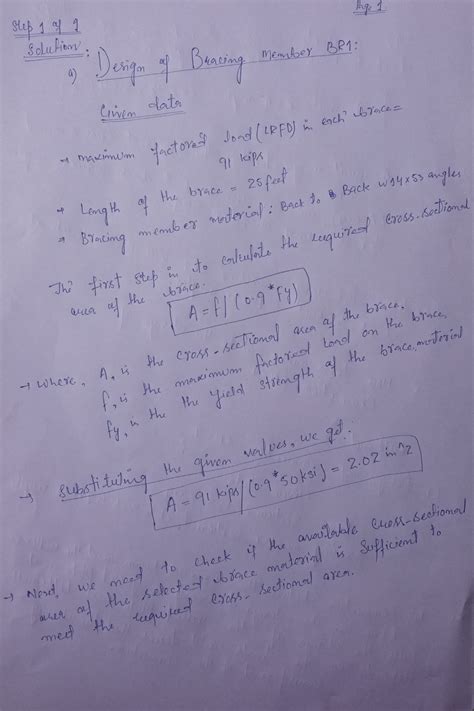 Pg. 1
Step 1 of 2
Solution:
a) Design of Bracing member BR1:
Given data
→ maximum factored load (LRFD) in each brace =
91 kips
→ Length of the brace = 25 feet
→ Bracing member material: Back to Back W14x53 angles
The first step is to calculate the required cross-sectional
area of the brace.
A = f / (0.9 * Fy)
→ where, A, is the cross-sectional area of the brace,
f, is the maximum factored load on the brace,
fy, is the the yield strength of the brace, material
→ Substituting the given values, we get:
A = 91 kips / (0.9 * 50 ksi) = 2.02 in^2
→ Next, we need to check if the available cross-sectional
area of the selected brace material is sufficient to
meet the required cross-sectional area.